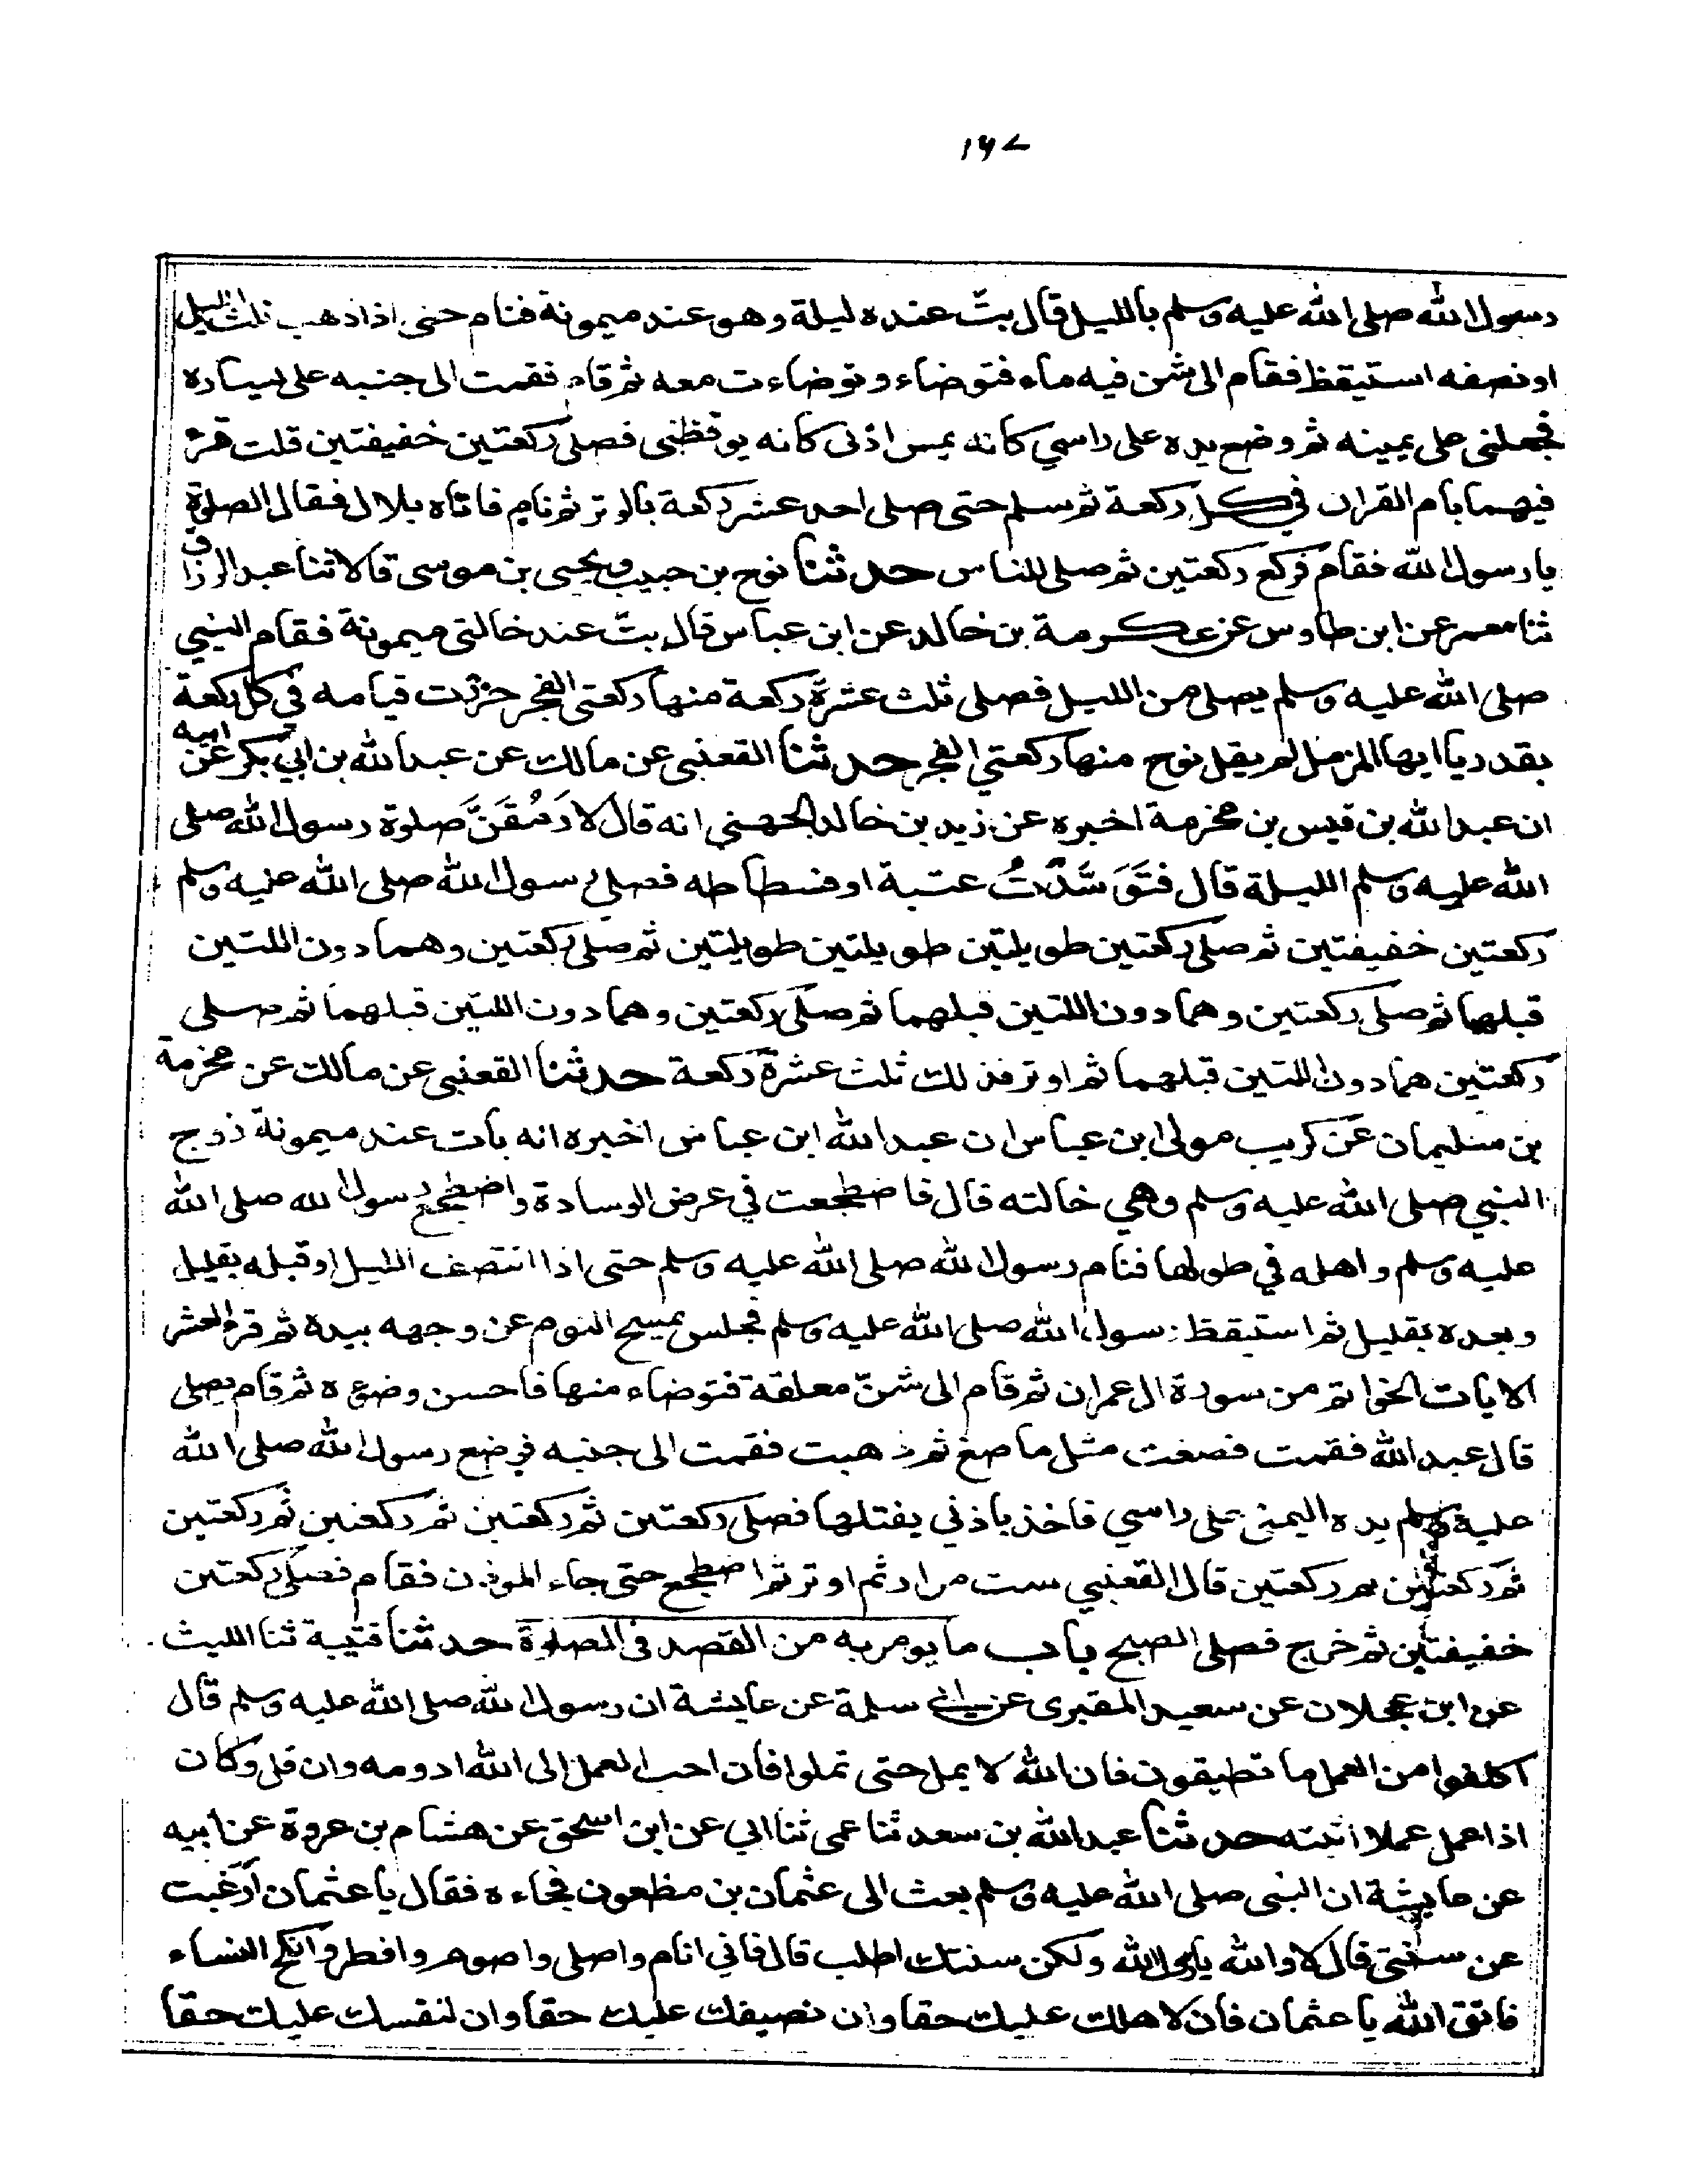 ١٦٧
رسول الله صلى الله عليه وسلم بالليل قال بتّ عنده ليلة وهو عند ميمونة فنام حتى اذا ذهب ثلث الليل
او نصفه استيقظ فقام الى شن فيه ماء فتوضاء وتوضاءت معه ثم قام فقمت الى جنبه على يساره
فجعلنى على يمينه ثم وضع يده على راسي كانه يمس اذنى كانه يوقظنى فصلى ركعتين خفيفتين قلت قرء
فيهما بام القران في كل ركعة ثم سلم حتى صلى احد عشر ركعة بالوتر ثم نام فاتاه بلال فقال الصلوة
يا رسول الله فقام فركع ركعتين ثم صلى للناس حدثنا نوح بن حبيب ويحيى بن موسى قالا ثنا عبد الرزاق
ثنا معمر عن ابن طاوس عن عكرمة بن خالد عن ابن عباس قال بتّ عند خالتى ميمونة فقام النبي
صلى الله عليه وسلم يصلى من الليل فصلى ثلث عشرة ركعة منها ركعتى الفجر حزرت قيامه في كل ركعة
بقدر يا ايها المزمل لم يقل نوح منها ركعتي الفجر حدثنا القعنبى عن مالك عن عبد الله بن ابي بكر عن ابيه
ان عبد الله بن قيس بن مخرمة اخبره عن زيد بن خالد الجهني انه قال لارمُقَنَّ صلوة رسول الله صلى
الله عليه وسلم الليلة قال فتَوَسَّدْتُ عتبة او فسطاطه فصلى رسول الله صلى الله عليه وسلم
ركعتين خفيفتين ثم صلى ركعتين طويلتين طويلتين طويلتين ثم صلى ركعتين وهما دون اللتين
قبلهما ثم صلى ركعتين وهما دون اللتين قبلهما ثم صلى ركعتين وهما دون اللتين قبلهما ثم صلى
ركعتين هما دون اللتين قبلهما ثم اوتر فذلك ثلث عشرة ركعة حدثنا القعنبى عن مالك عن مخرمة
بن سليمان عن كريب مولى ابن عباس ان عبد الله ابن عباس اخبره انه بات عند ميمونة زوج
النبي صلى الله عليه وسلم وهي خالته قال فاضطجعت في عرض الوسادة واضطجع رسول الله صلى الله
عليه وسلم واهله في طولها فنام رسول الله صلى الله عليه وسلم حتى اذا انتصف الليل او قبله بقليل
وبعده بقليل ثم استيقظ رسول الله صلى الله عليه وسلم فجلس يمسح النوم عن وجهه بيده ثم قرء العشر
الايات الخواتم من سورة ال عمران ثم قام الى شنّ معلقة فتوضاء منها فاحسن وضوءه ثم قام يصلى
قال عبد الله فقمت فصنعت مثل ما صنع ثم ذهبت فقمت الى جنبه فوضع رسول الله صلى الله
عليه وسلم يده اليمنى على راسي فاخذ باذني يفتلها فصلى ركعتين ثم ركعتين ثم ركعتين ثم ركعتين
ثم ركعتين ثم ركعتين قال القعنبي ست مرار ثم اوتر ثم اضطجع حتى جاء الموذن فقام فصلى ركعتين
خفيفتين ثم خرج فصلى الصبح باب ما يومر به من القصد فى الصلوة حدثنا قتيبة ثنا الليث
عن ابن عجلان عن سعيد المقبرى عن ابي سلمة عن عايشة ان رسول الله صلى الله عليه وسلم قال
اكلفوا من العمل ما تطيقون فان الله لا يمل حتى تملوا فان احب العمل الى الله ادومه وان قل وكان
اذا عمل عملا اثبته حدثنا عبد الله بن سعد ثنا عمى ثنا ابي عن ابن اسحق عن هشام بن عروة عن ابيه
عن عايشة ان النبى صلى الله عليه وسلم بعث الى عثمان بن مظعون فجاءه فقال يا عثمان أرغبت
عن سنتى قال لا والله يا رسول الله ولكن سنتك اطلب قال فاني انام واصلى واصوم وافطر وانكح النساء
فاتق الله يا عثمان فان لاهلك عليك حقا وان لضيفك عليك حقا وان لنفسك عليك حقا